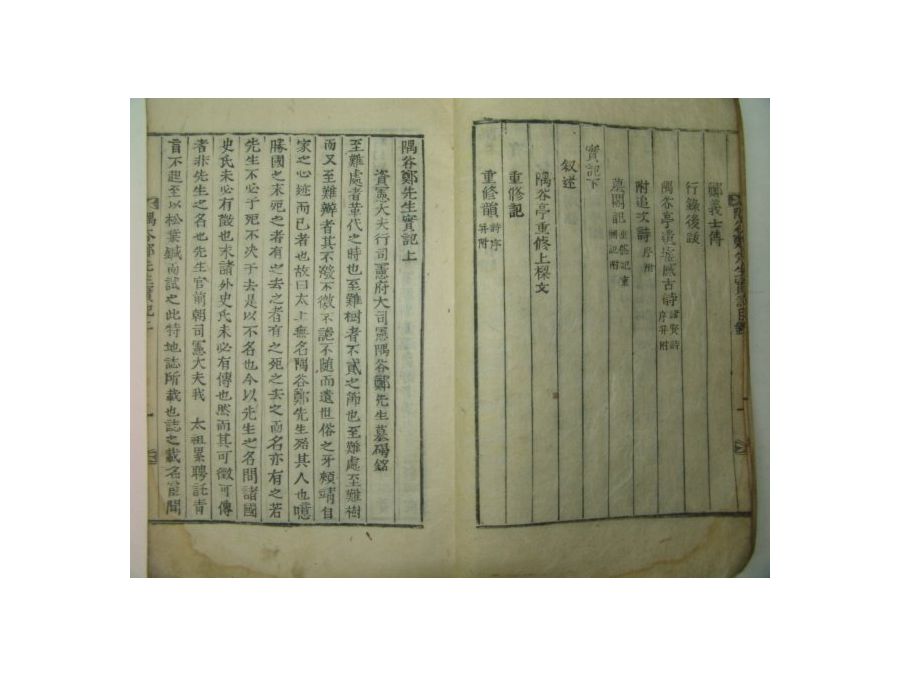 鄭義士傳
行錄後跋
隅谷亭遺墟感古詩 諸賢詩序并附
附追次詩 序附
墓閣記 重修記附
實記下
叙述
隅谷亭重修上樑文
重修記
重修韻 詩序并附
隅谷鄭先生實記上
資憲大夫行司憲府大司憲隅谷鄭先生墓碣銘
至難處者革代之時也至難樹者不貳之節也至難處至難樹
而又至難辨者其不激不微不詭不隨而遺世俗之牙頰靖自
家之心跡而已者也故曰太上無名隅谷鄭先生殆其人也噫
勝國之末死之者有之去之者有之死之去之而名亦有之若
先生不必于死不决于去是以不名也今以先生之名問諸國
史氏未必有徵也求諸外史氏未必有傳也然而其可徵可傳
者非先生之名也先生官前朝司憲大夫我 太祖累聘託靑
盲不起至以松葉鍼而試之此特地誌所載也誌之載名言聞
隅谷鄭先生實記上 一